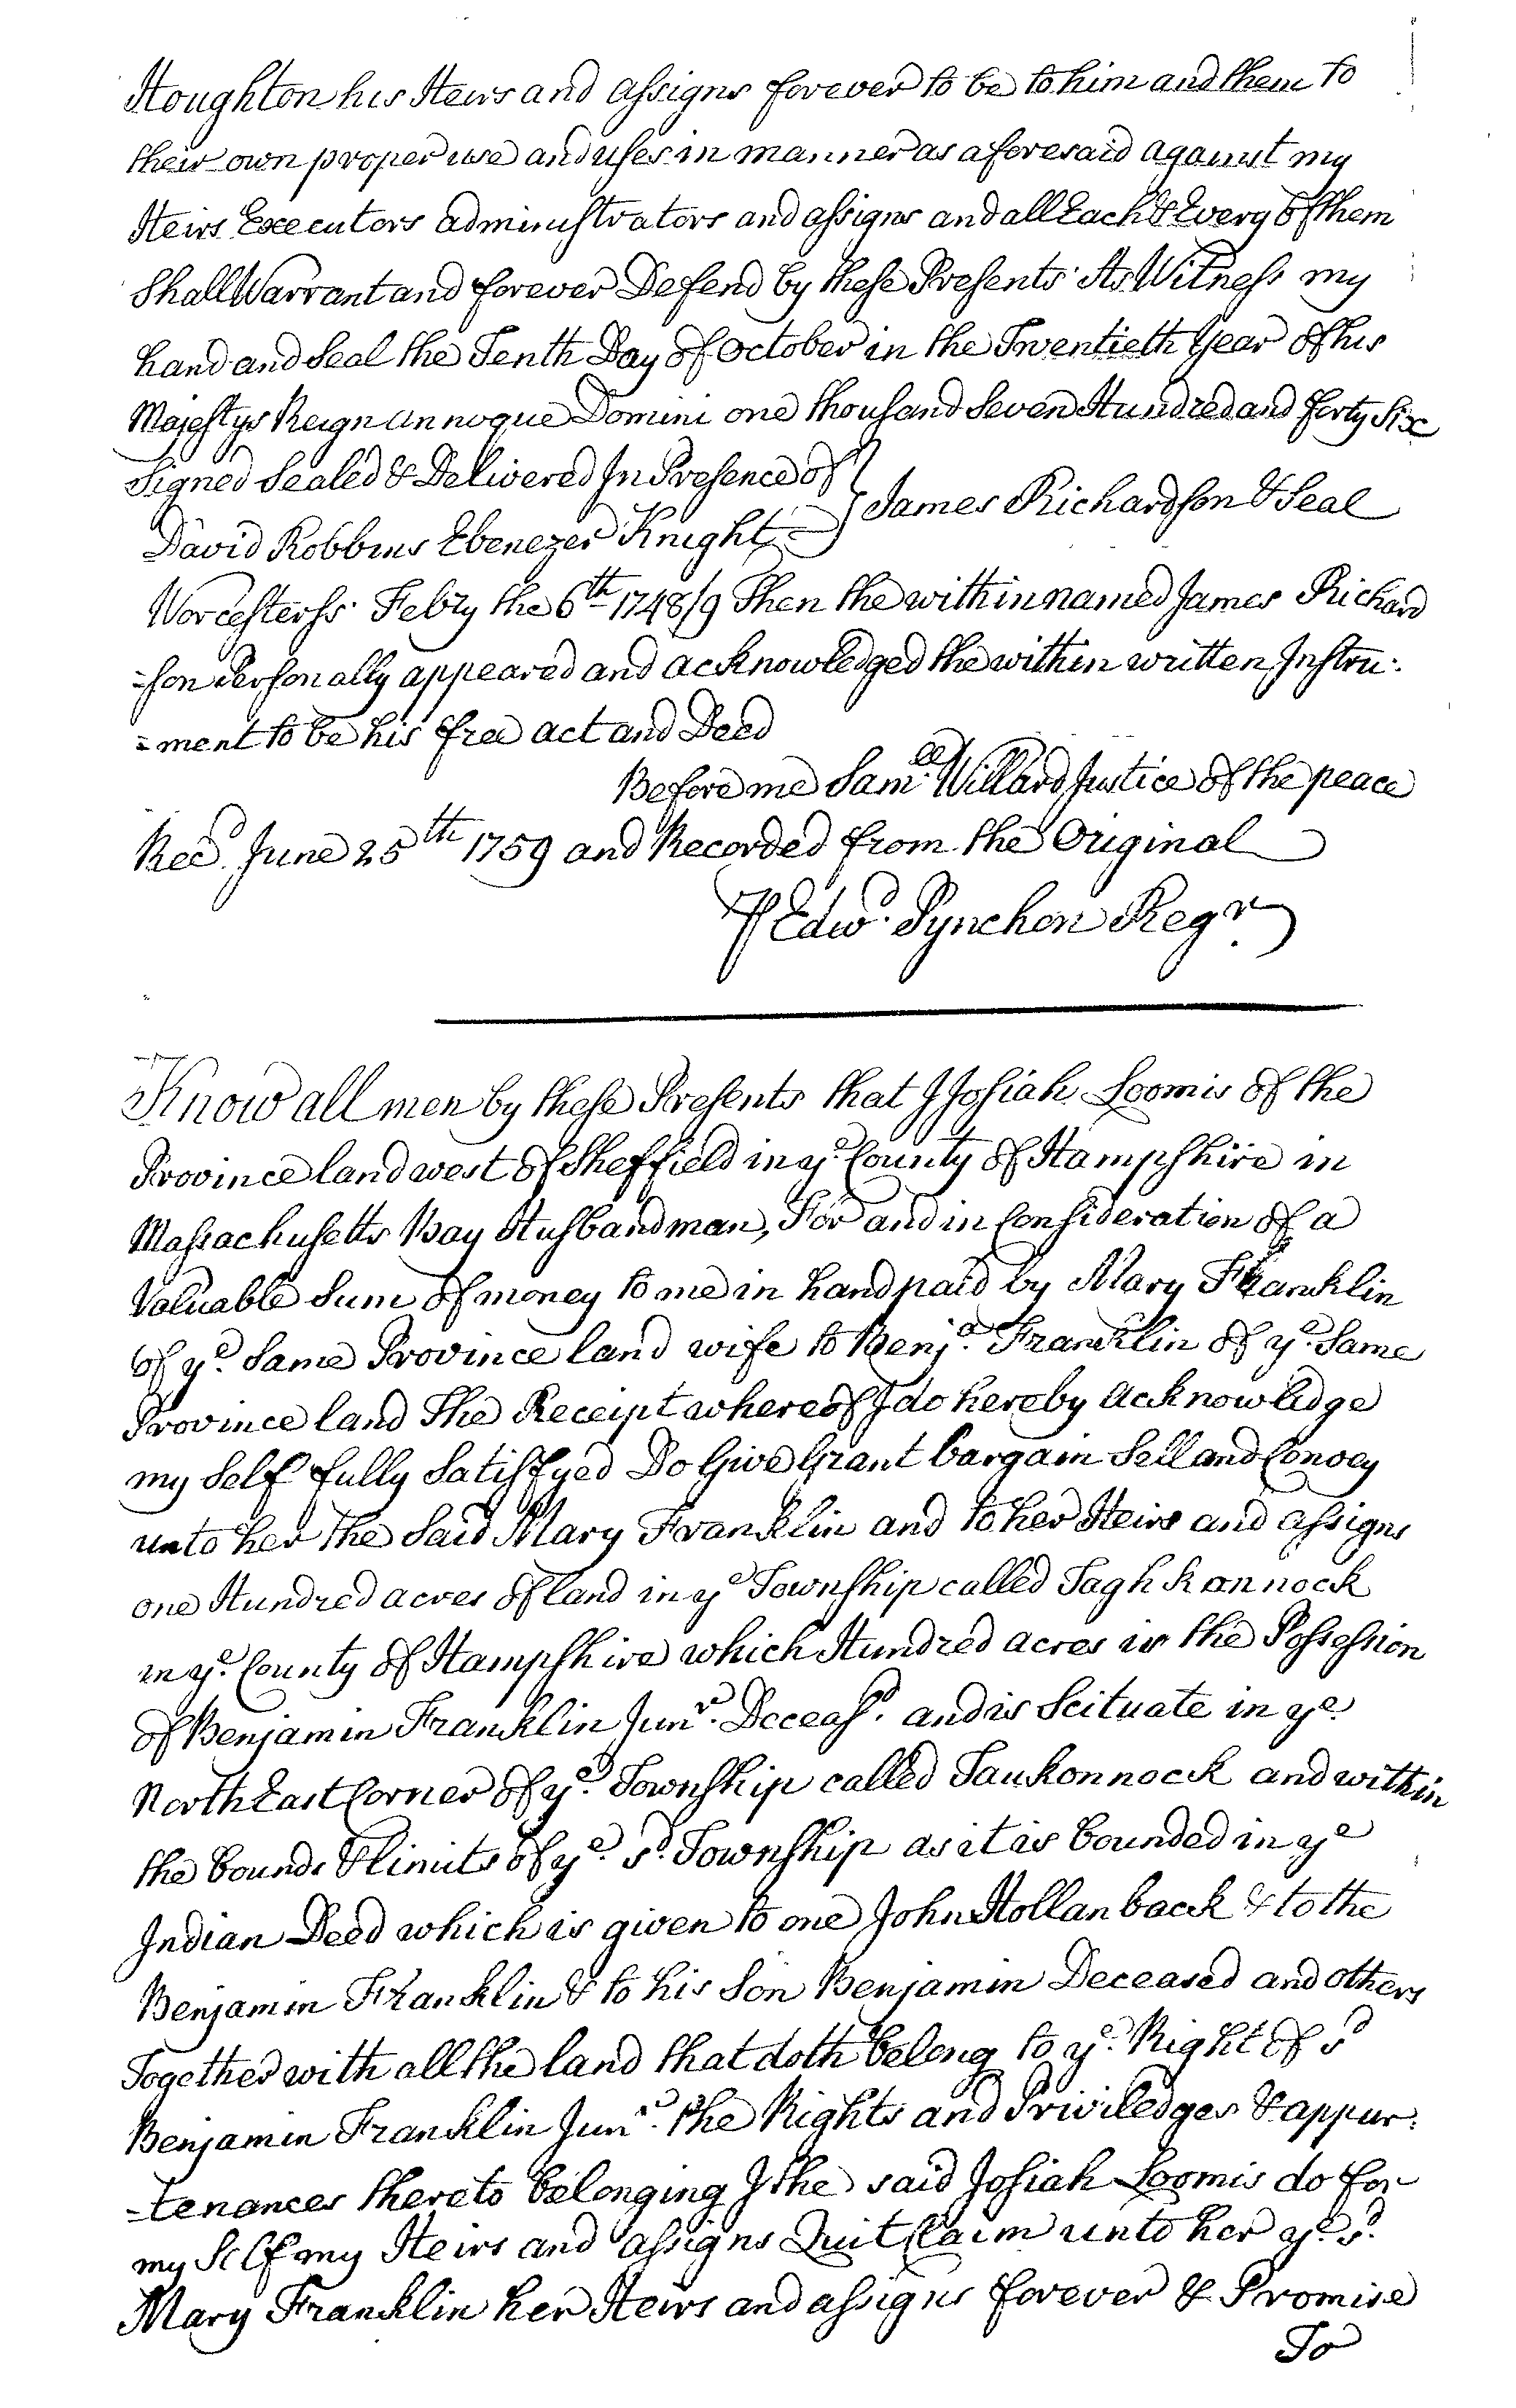 Houghton his Heirs and assigns forever to be to him and them to
their own proper use and uses in manner as aforesaid against my
Heirs Executors administrators and assigns and all Each & Every of them
Shall Warrant and forever Defend by these Presents. As Witness my
hand and Seal the Tenth Day of October in the Twentieth Year of his
Majestys Reign annoque Domini one thousand Seven Hundred and forty Six
Signed Sealed & Delivered In Presence of } James Richardson & Seal
David Robbins Ebenezer Knight
Worcester ss. Febry the 6th 1748/9 Then the within named James Richard
=son Personally appeared and acknowledged the within written Instru-
=ment to be his free act and Deed
Before me Samll Willard Justice of the peace
Recd. June 25th 1759 and Recorded from the Original
Edwd. Pynchon Regr.
Know all men by these Presents that I Josiah Loomis of the
Province land west of Sheffield in ye. County of Hampshire in
Massachusetts Bay Husbandman, For and in Consideration of a
Valuable Sum of money to me in hand paid by Mary Franklin
of ye. Same Province land wife to Benja. Franklin of ye. Same
Province land The Receipt whereof I do hereby acknowledge
my Self fully Satisfyed Do Give Grant bargain Sell and Convey
unto her the Said Mary Franklin and to her Heirs and assigns
one Hundred acres of land in ye Township called Taghkannock
in ye. County of Hampshire which Hundred acres is the Possession
of Benjamin Franklin Junr. Deceasd. and is Scituate in ye.
North East Corner of ye. Township called Taukonnock and within
the bounds & limits of ye. sd. Township as it is bounded in ye
Indian Deed which is given to one John Hollanback & to the
Benjamin Franklin & to his Son Benjamin Deceased and others
Together with all the land that doth belong to ye. Right of sd
Benjamin Franklin Junr. the Rights and Priviledges & appur:
=tenances thereto belonging I the said Josiah Loomis do for
my Self my Heirs and assigns Quit Claim unto her ye. sd.
Mary Franklin her Heirs and assigns forever & Promise
To